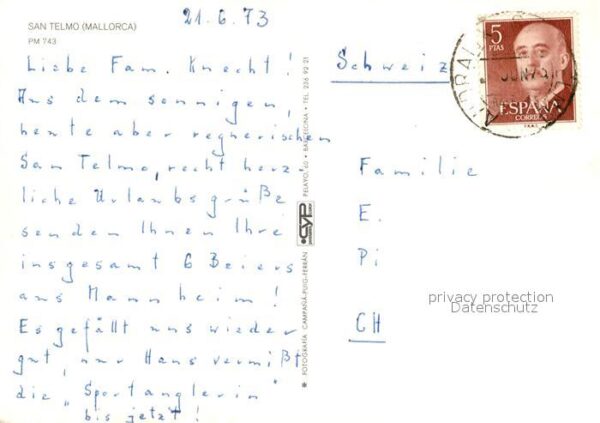 SAN TELMO (MALLORCA)
PM 743
21.6.73
Liebe Fam. Knecht!
Aus dem sonnigen,
heute aber regnerischen
San Telmo, recht herz-
liche Urlaubsgrüße
senden Ihnen Ihre
insgesamt 6 Beiers
aus Mannheim!
Es gefällt uns wieder
gut, nur Hans vermißt
die „Sportanglerin"
bis jetzt!
FOTOGRAFÍA CAMPAÑÁ-PUIG-FERRÁN
CYP
PELAYO, 60 • BARCELONA • TEL. 226 92 21
5
PTAS
ESPAÑA
CORREOS
JUN 73
Schweiz
Familie
E.
Pi
CH
privacy protection
Datenschutz